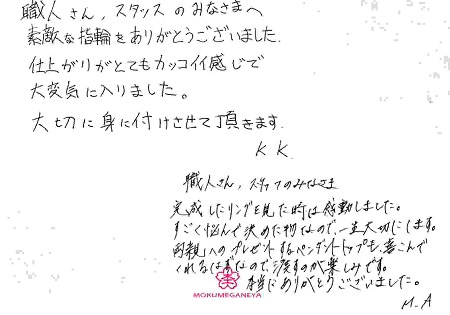 職人さん，スタッフのみなさまへ
素敵な指輪をありがとうございました.
仕上がりがとてもカッコイイ感じで
大変気に入りました。
大切に身に付けさせて頂きます.
K K.
職人さん，スタッフのみなさま
完成したリングを見た時は感動しました。
すごく悩んで決めた物なので、一生大切にします。
両親へのプレゼントするペンダントトップも、喜こんで
くれるはずなので、渡すのが楽しみです。
本当にありがとうございました。
M.A
MOKUMEGANEYA